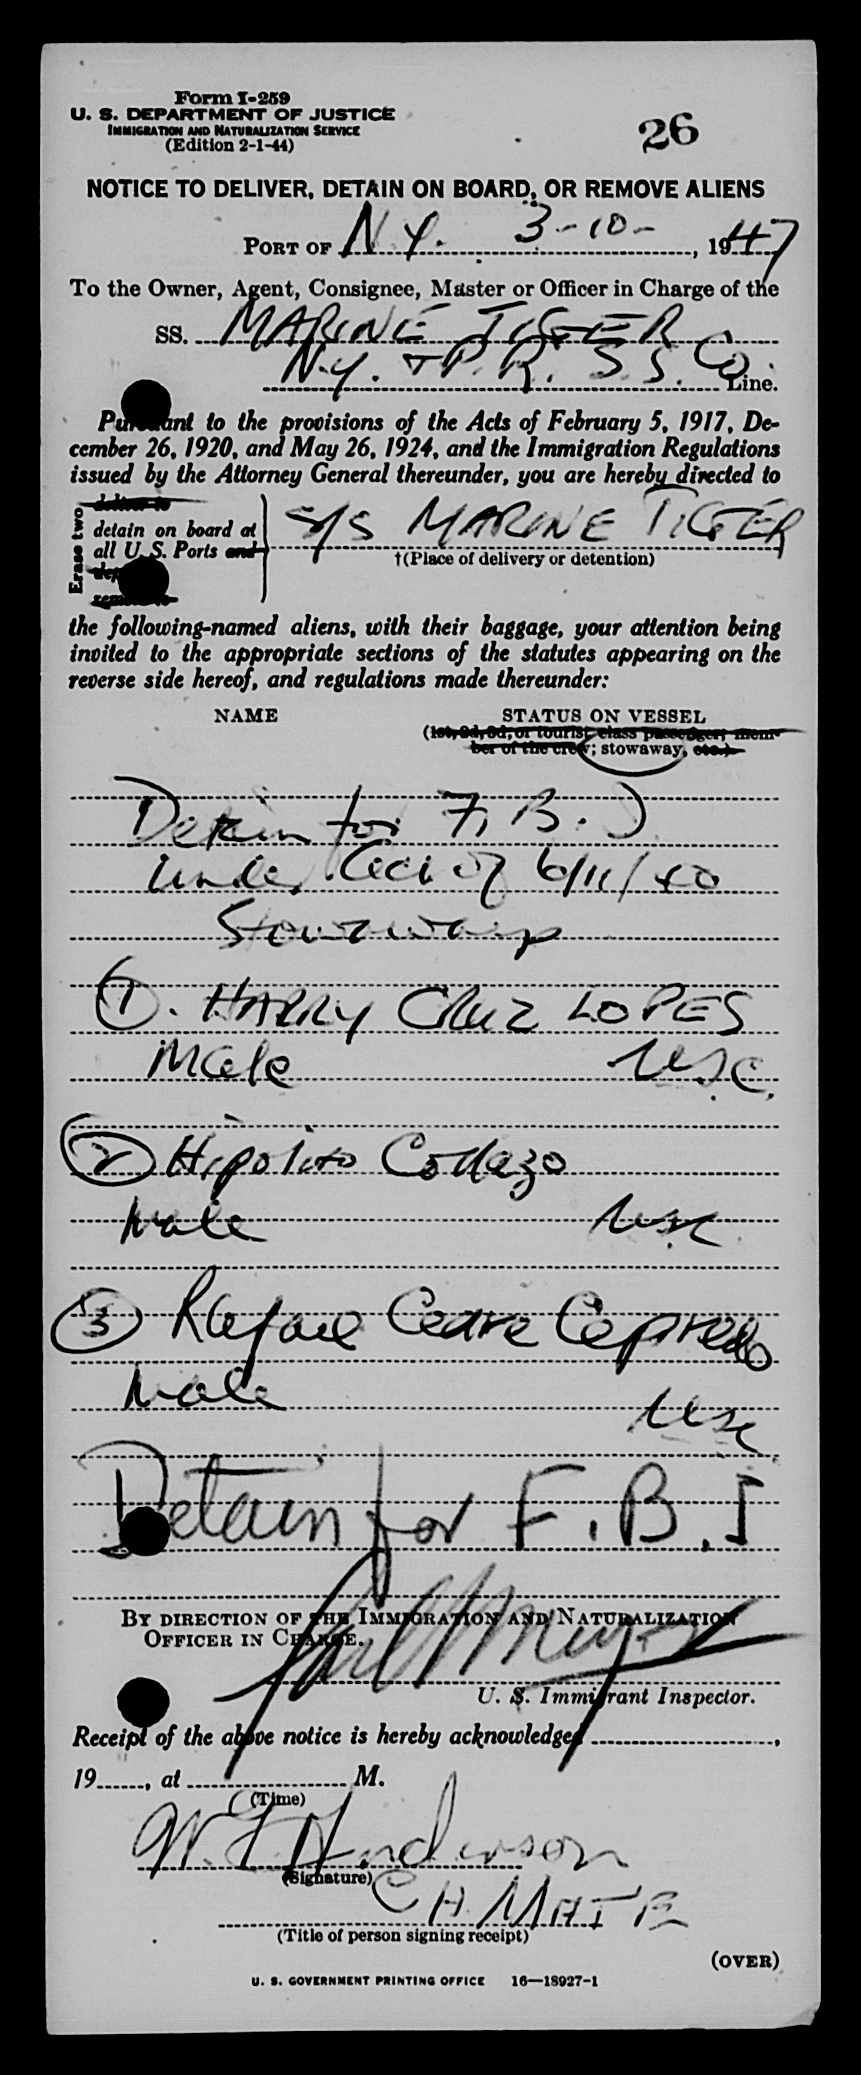 Form I-259
U. S. DEPARTMENT OF JUSTICE
IMMIGRATION AND NATURALIZATION SERVICE
(Edition 2-1-44)
26
NOTICE TO DELIVER, DETAIN ON BOARD, OR REMOVE ALIENS
PORT OF N.Y. 3-10-, 1947
To the Owner, Agent, Consignee, Master or Officer in Charge of the
SS. MARINE TIGER
N.Y. + P.R. S.S. Co. Line.
Pursuant to the provisions of the Acts of February 5, 1917, De-
cember 26, 1920, and May 26, 1924, and the Immigration Regulations
issued by the Attorney General thereunder, you are hereby directed to
Erase two
deliver to
detain on board at
all U. S. Ports and
remove to
S/S MARINE TIGER
†(Place of delivery or detention)
the following-named aliens, with their baggage, your attention being
invited to the appropriate sections of the statutes appearing on the
reverse side hereof, and regulations made thereunder:
NAME STATUS ON VESSEL
(1st, 2d, 3d, or tourist class passenger; mem-
ber of the crew; stowaway, etc.)
Detain for F.B.I
Under Act of 6/11/40
Stowaway
1. HARRY CRUZ LOPES
Male USC.
2 Hipolito Collazo
Male USC
3 Rafael
Male USC
Detain for F.B.I
BY DIRECTION OF THE IMMIGRATION AND NATURALIZATION
OFFICER IN CHARGE.
U. S. Immigrant Inspector.
Receipt of the above notice is hereby acknowledged ,
19 , at M.
(Time)
W. Anderson
(Signature)
CH. MATE
(Title of person signing receipt)
(OVER)
U. S. GOVERNMENT PRINTING OFFICE 16—18927-1